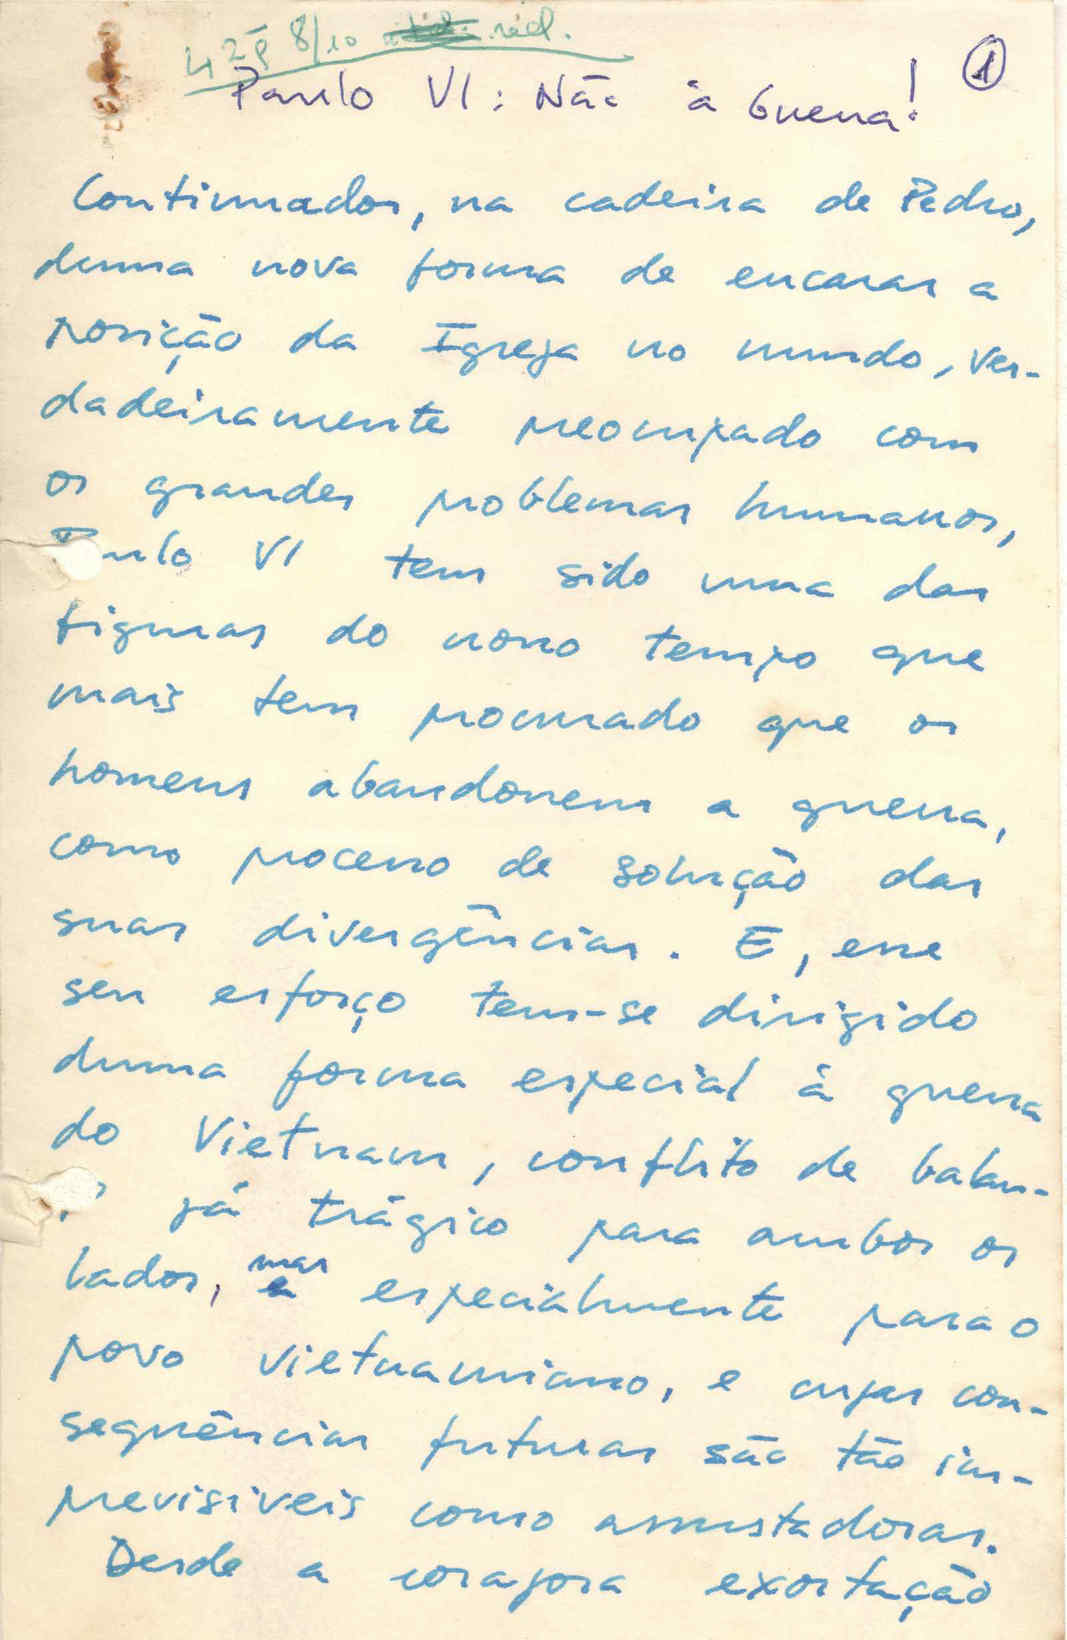 8/10 réd.
1
Paulo VI: Não à Guerra!
Continuador, na cadeira de Pedro,
duma nova forma de encarar a
posição da Igreja no mundo, ver-
dadeiramente preocupado com
os grandes problemas humanos,
Paulo VI tem sido uma das
figuras do nosso tempo que
mais tem procurado que os
homens abandonem a guerra,
como processo de solução das
suas divergências. E, esse
seu esforço tem-se dirigido
duma forma especial à guerra
do Vietnam, conflito de balan-
já trágico para ambos os
lados, mas especialmente para o
povo vietnamiano, e cujas con-
sequências futuras são tão im-
previsiveis como assustadoras.
Desde a corajosa exortação